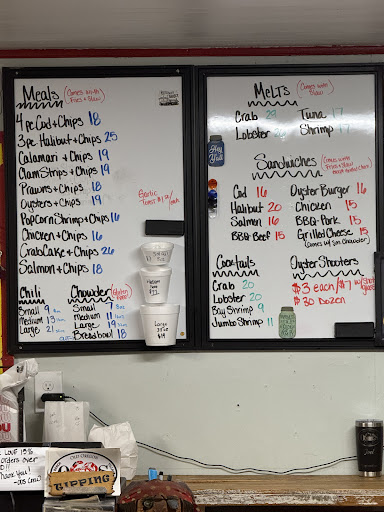 Meals (Comes with Fries + Slaw)
4 pc Cod + Chips 18
3 pc Halibut + Chips 25
Calamari + Chips 19
Clam Strips + Chips 19
Prawns + Chips 18
Oysters + Chips 19
PopCorn Shrimp + Chips 16
Chicken + Chips 16
Crab Cake + Chips 26
Salmon + Chips 18
Garlic
Toast
Chili
Small 9
Medium 13
Large 21
Chowder (Gluten Free)
Small 8
Medium 11
Large 19
Breadbowl 18
Large
$19
Melts (Comes with Slaw)
Crab
Tuna 17
Lobster
Shrimp 17
Hey
Y'all
Sandwiches
Cod 16
Halibut 20
Salmon 16
BBQ Beef 15
Oyster Burger 16
Chicken 15
BBQ Pork 15
Grilled Cheese 15
Cocktails
Crab 20
Lobster 20
Bay Shrimp 9
Jumbo Shrimp 11
Oyster Shooters
$3 each/$7 w/
$30 Dozen
LOVE 15%
orders over
Thank You!
OLD OREGON
TIPPING